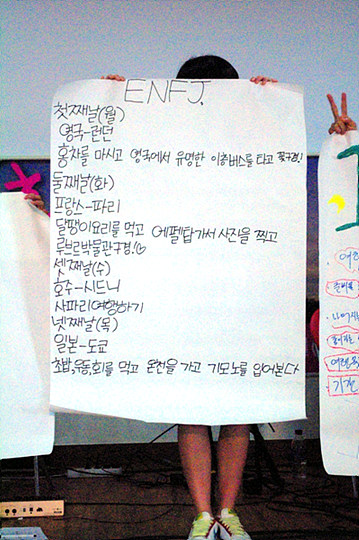 ENFJ.
첫째날(월)
영국-런던
홍차를 마시고 영국에서 유명한 이층버스를 타고 꽃구경!
둘째날(화)
프랑스-파리
달팽이요리를 먹고 에펠탑가서 사진을 찍고
루브르박물관구경!♡
셋째날(수)
호주-시드니
사파리여행하기
넷째날(목)
일본-도쿄
초밥, 우동회를 먹고 온천을 가고 기모노를 입어본다